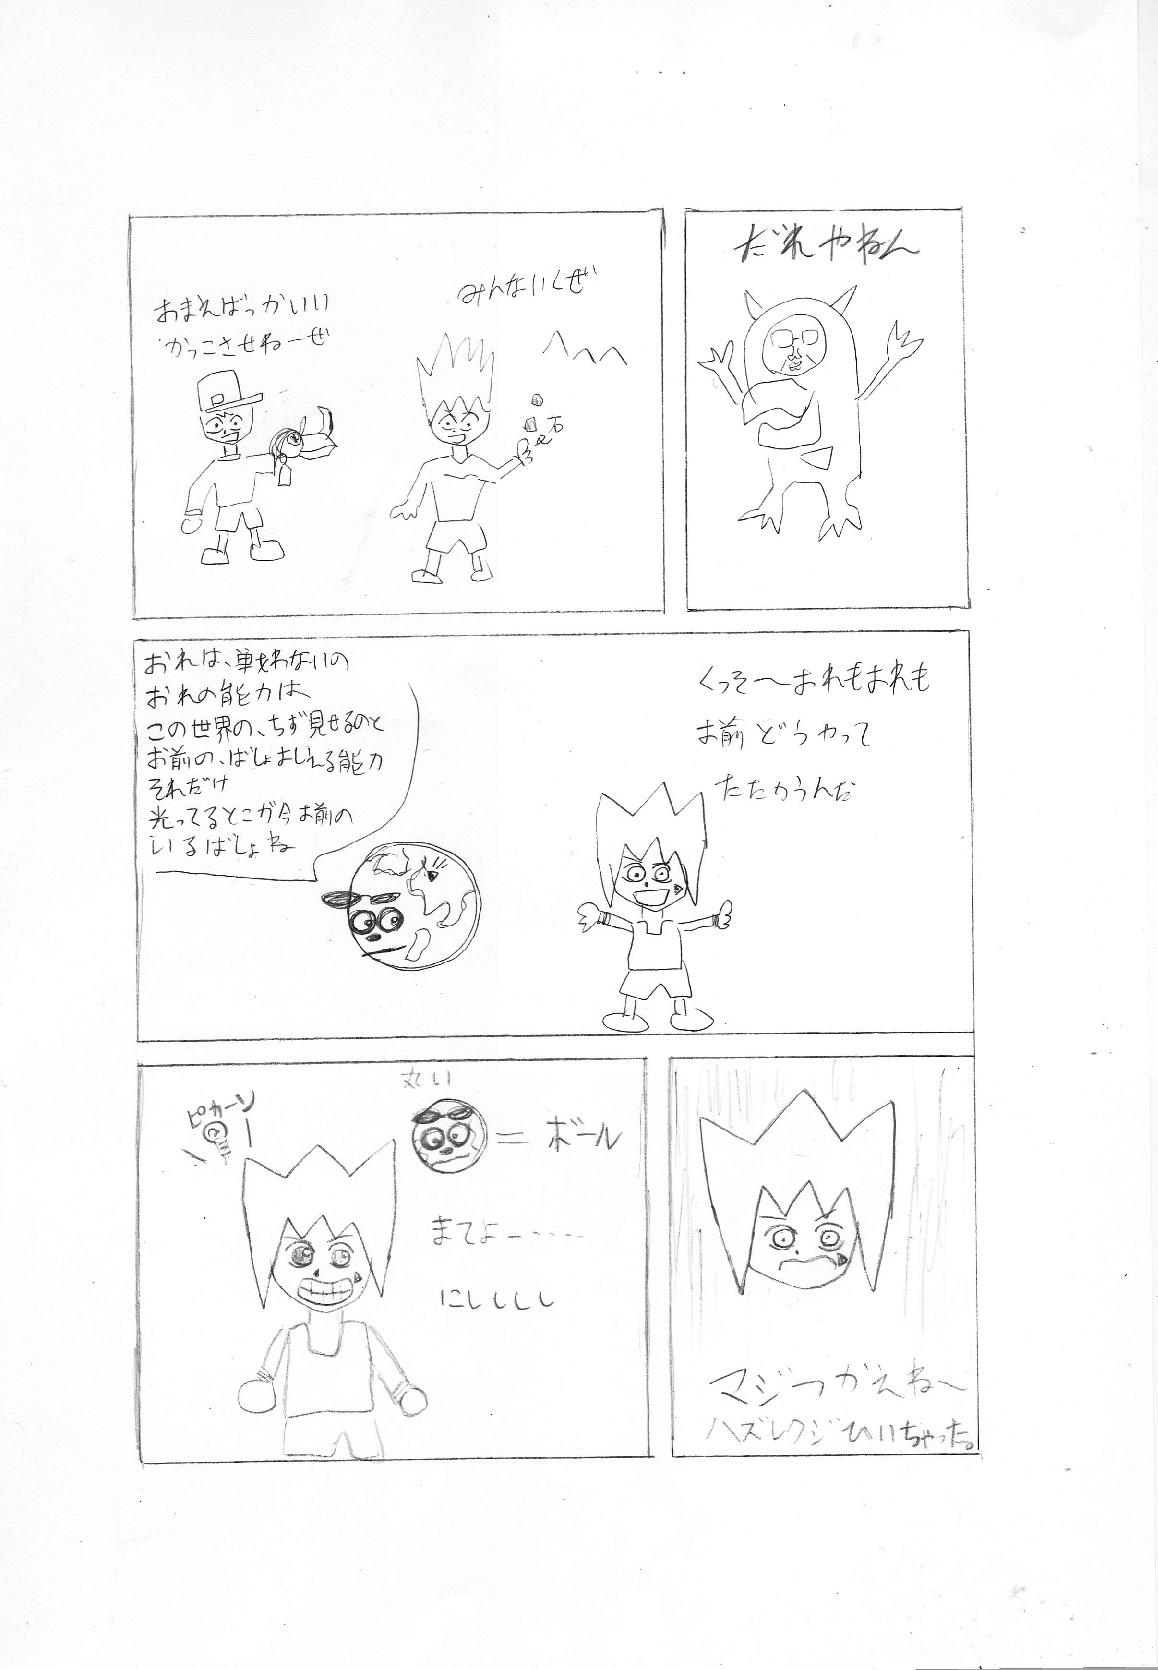 だれやねん
みんないくぜ
へへへ
石
おまえばっかいい
かっこさせねーぜ
くっそ〜おれもおれも
お前どうやって
たたかうんだ
おれは、戦わないの
おれの能力は、
この世界の、ちず見せるのと
お前の、ばしょおしえる能力
それだけ
光ってるとこが今お前の
いるばしょね
マジつかえね〜
ハズレクジひいちゃった。
丸い
= ボール
ピカーン
まてよー‥‥‥
にしししし